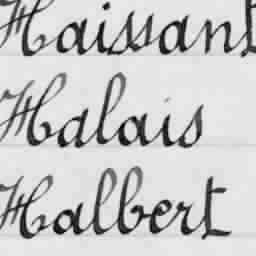 Haissant
Halais
Halbert